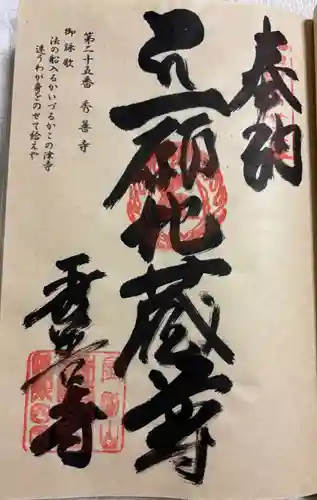 奉納
立願地蔵尊
秀善寺
第二十五番 秀善寺
御詠歌
法の船入るかいづるかこの津寺
迷うわが身をのせて給えや